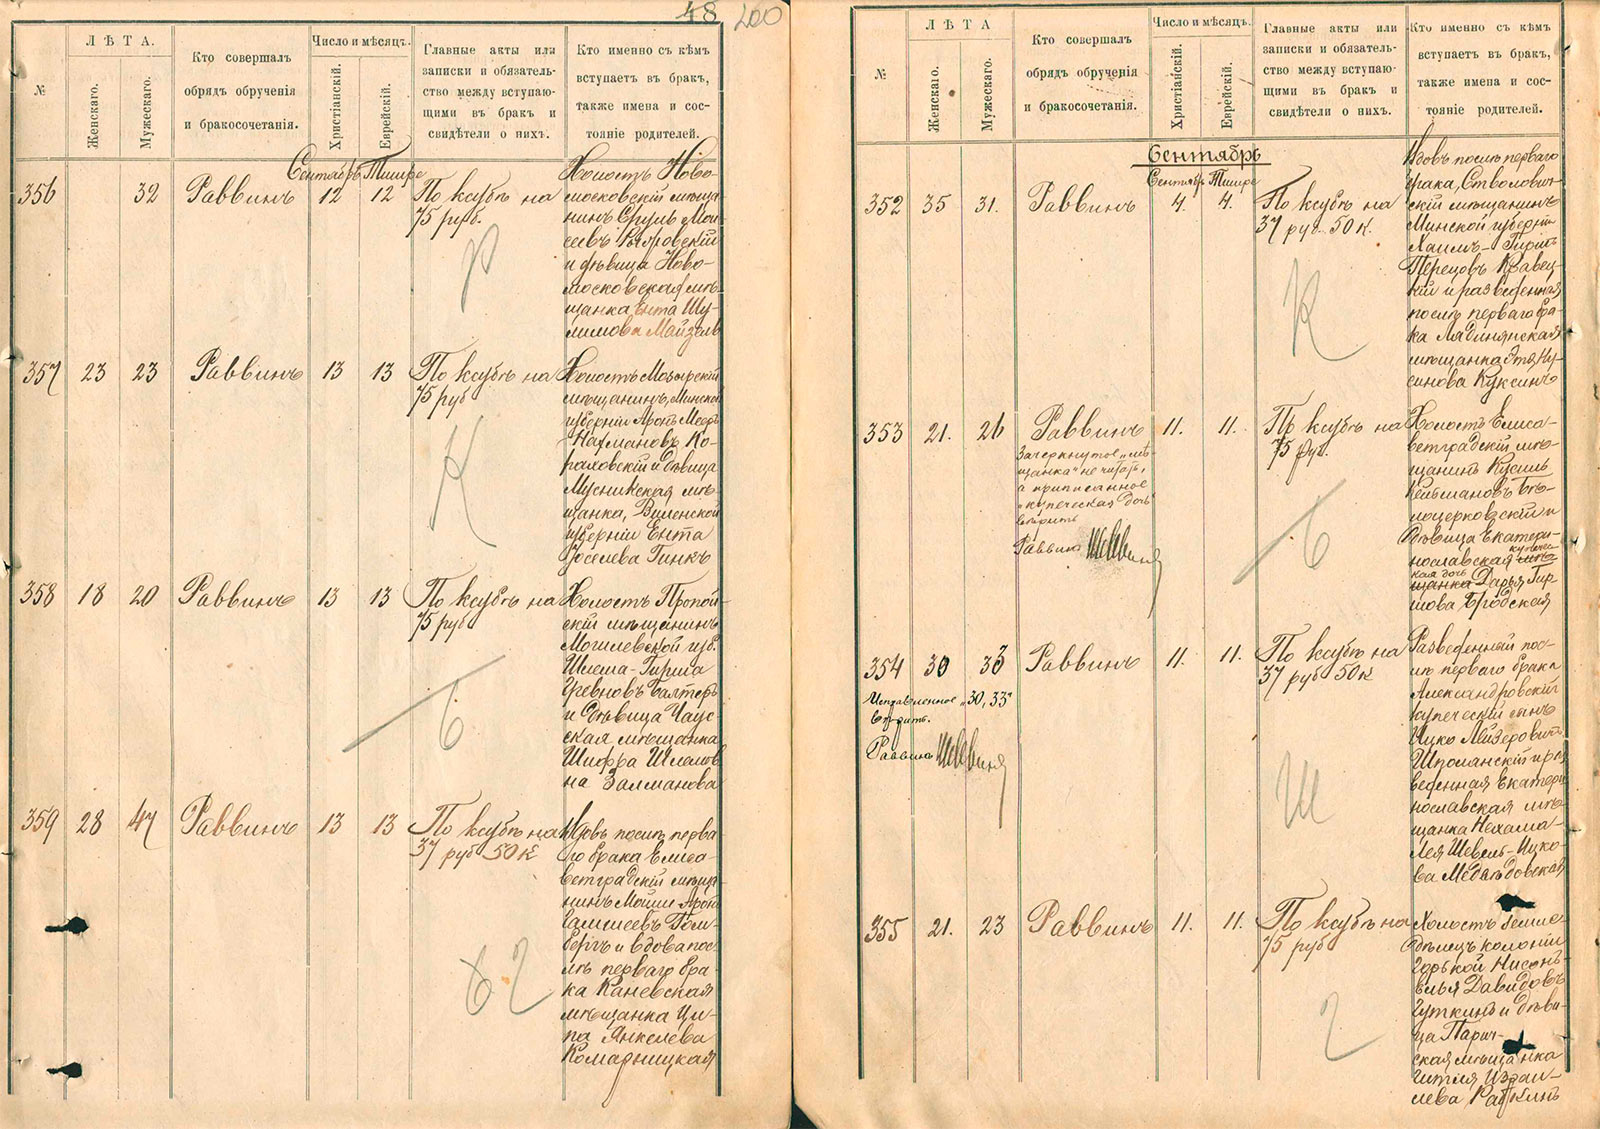 48 200
№
ЛѢТА.
Женскаго.
Мужескаго.
Кто совершалъ
обрядъ обрученія
и бракосочетанія.
Число и мѣсяцъ.
Христіанскій.
Еврейскій.
Главные акты или
записки и обязатель-
ство между вступаю-
щими въ бракъ и
свидѣтели о нихъ.
Кто именно съ кѣмъ
вступаетъ въ бракъ,
также имена и сос-
тояніе родителей.
Сентябрь Тишре
356 32 Раввинъ 12 12
По ксубѣ на
75 руб.
Холостъ Ново-
московскій мѣща
нинъ Сруль Мои
сеевъ
и дѣвица Ново-
московская мѣ-
щанка Ента Шу-
лимова Майзель
357 23 23 Раввинъ 13 13
По ксубѣ на
75 руб
Холостъ Мозырскій
мѣщанинъ, Минской
губерніи Аронъ Меер
Нахмановъ Ко-
раховскій и дѣвица
Мусникская мѣ-
щанка, Виленской
губерніи Ента
Іоселева Гинкъ
358 18 20 Раввинъ 13 13
По ксубѣ на
75 руб
Холостъ Пропой-
скій мѣщанинъ
Могилевской губ.
Шлема-Гирша
Балтеръ
и дѣвица Чаус-
ская мѣщанка
Шифра Шлемов
на Залманова
359 28 47 Раввинъ 13 13
По ксубѣ на
37 руб 50 к
Вдовъ послѣ перва-
го брака Елиса-
ветградскій мѣща
нинъ Мойше Арон
Гом-
бергъ и вдова пос-
лѣ перваго бра-
ка Каневская
мѣщанка Ци-
па Янкелева
Комарницкая
№
ЛѢТА
Женскаго.
Мужескаго.
Кто совершалъ
обрядъ обрученія
и бракосочетанія.
Число и мѣсяцъ.
Христіанскій.
Еврейскій.
Главные акты или
записки и обязатель-
ство между вступаю-
щими въ бракъ и
свидѣтели о нихъ.
Кто именно съ кѣмъ
вступаетъ въ бракъ,
также имена и сос-
тояніе родителей.
Сентябрь
Сентябрь Тишре
352 35 31. Раввинъ 4. 4.
По ксубѣ на
37 руб. 50 к.
Вдовъ послѣ перваго
брака, Стволович-
скій мѣщанинъ
Минской губерніи
Хаимъ-Гиршъ
Перецовъ Кравец-
кій и разведенная
послѣ перваго бра-
ка Лядинянская
мѣщанка Этя Ну-
синова Куксинъ
353 21. 26 Раввинъ 11. 11.
По ксубѣ на
75 руб.
Зачеркнутое „мѣ-
щанка" не читать,
а приписанное
„купеческая дочь"
вѣрить
Раввинъ Шевинъ
Холостъ Елиса-
ветградскій мѣ-
щанинъ Кусиль
Кельмановъ Бѣ-
лоцерковскій и
дѣвица Екатери-
нославская мѣ- купечес-
щанка кая дочь Дарья Гир-
шова Бродская
354 30 33 Раввинъ 11. 11.
По ксубѣ на
37 руб 50 к
Исправленное „30, 33"
вѣрить.
Раввинъ Шевинъ
Разведенный пос-
лѣ перваго брака
Александровскій
купеческій сынъ
Ицко Лейзеровичъ
Шполанскій и раз
веденная Екатери
нославская мѣ-
щанка Нехама-
Лея Шевель-Ицко-
ва Медвѣдовская
355 21. 23 Раввинъ 11. 11.
По ксубѣ на
75 руб
Холостъ Земле-
дѣлецъ колоніи
Горькой Нисонъ-
Елья Давидовъ
Гуткинъ и дѣви-
ца Парич-
ская мѣщанка
Гитля Израи-
лева Рапкинъ